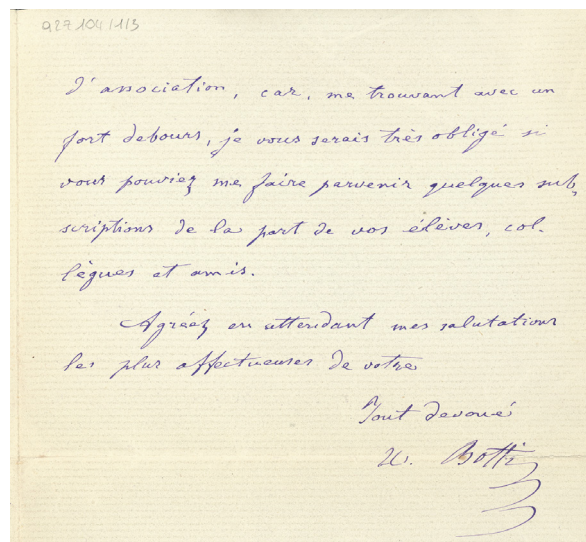 927104/1/3
d'association, car, me trouvant avec un
fort debours, je vous serais très obligé si
vous pouviez me faire parvenir quelques sub,
scriptions de la part de vos élèves, col-
lègues et amis.
Agréez en attendant mes salutations
les plus affectueuses de votre
Tout devoué
U. Botti